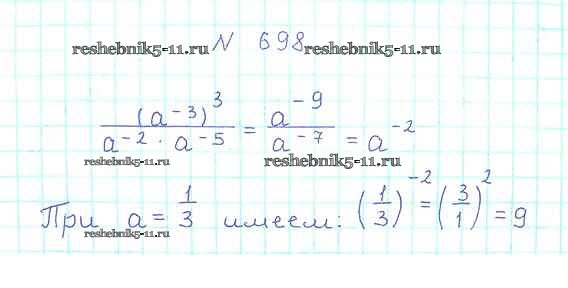 reshebnik5-11.ru № 698 reshebnik5-11.ru
(a⁻³)³ / (a⁻² · a⁻⁵) = a⁻⁹ / a⁻⁷ = a⁻²
reshebnik5-11.ru reshebnik5-11.ru
При a = 1/3 имеем: (1/3)⁻² = (3/1)² = 9
reshebnik5-11.ru